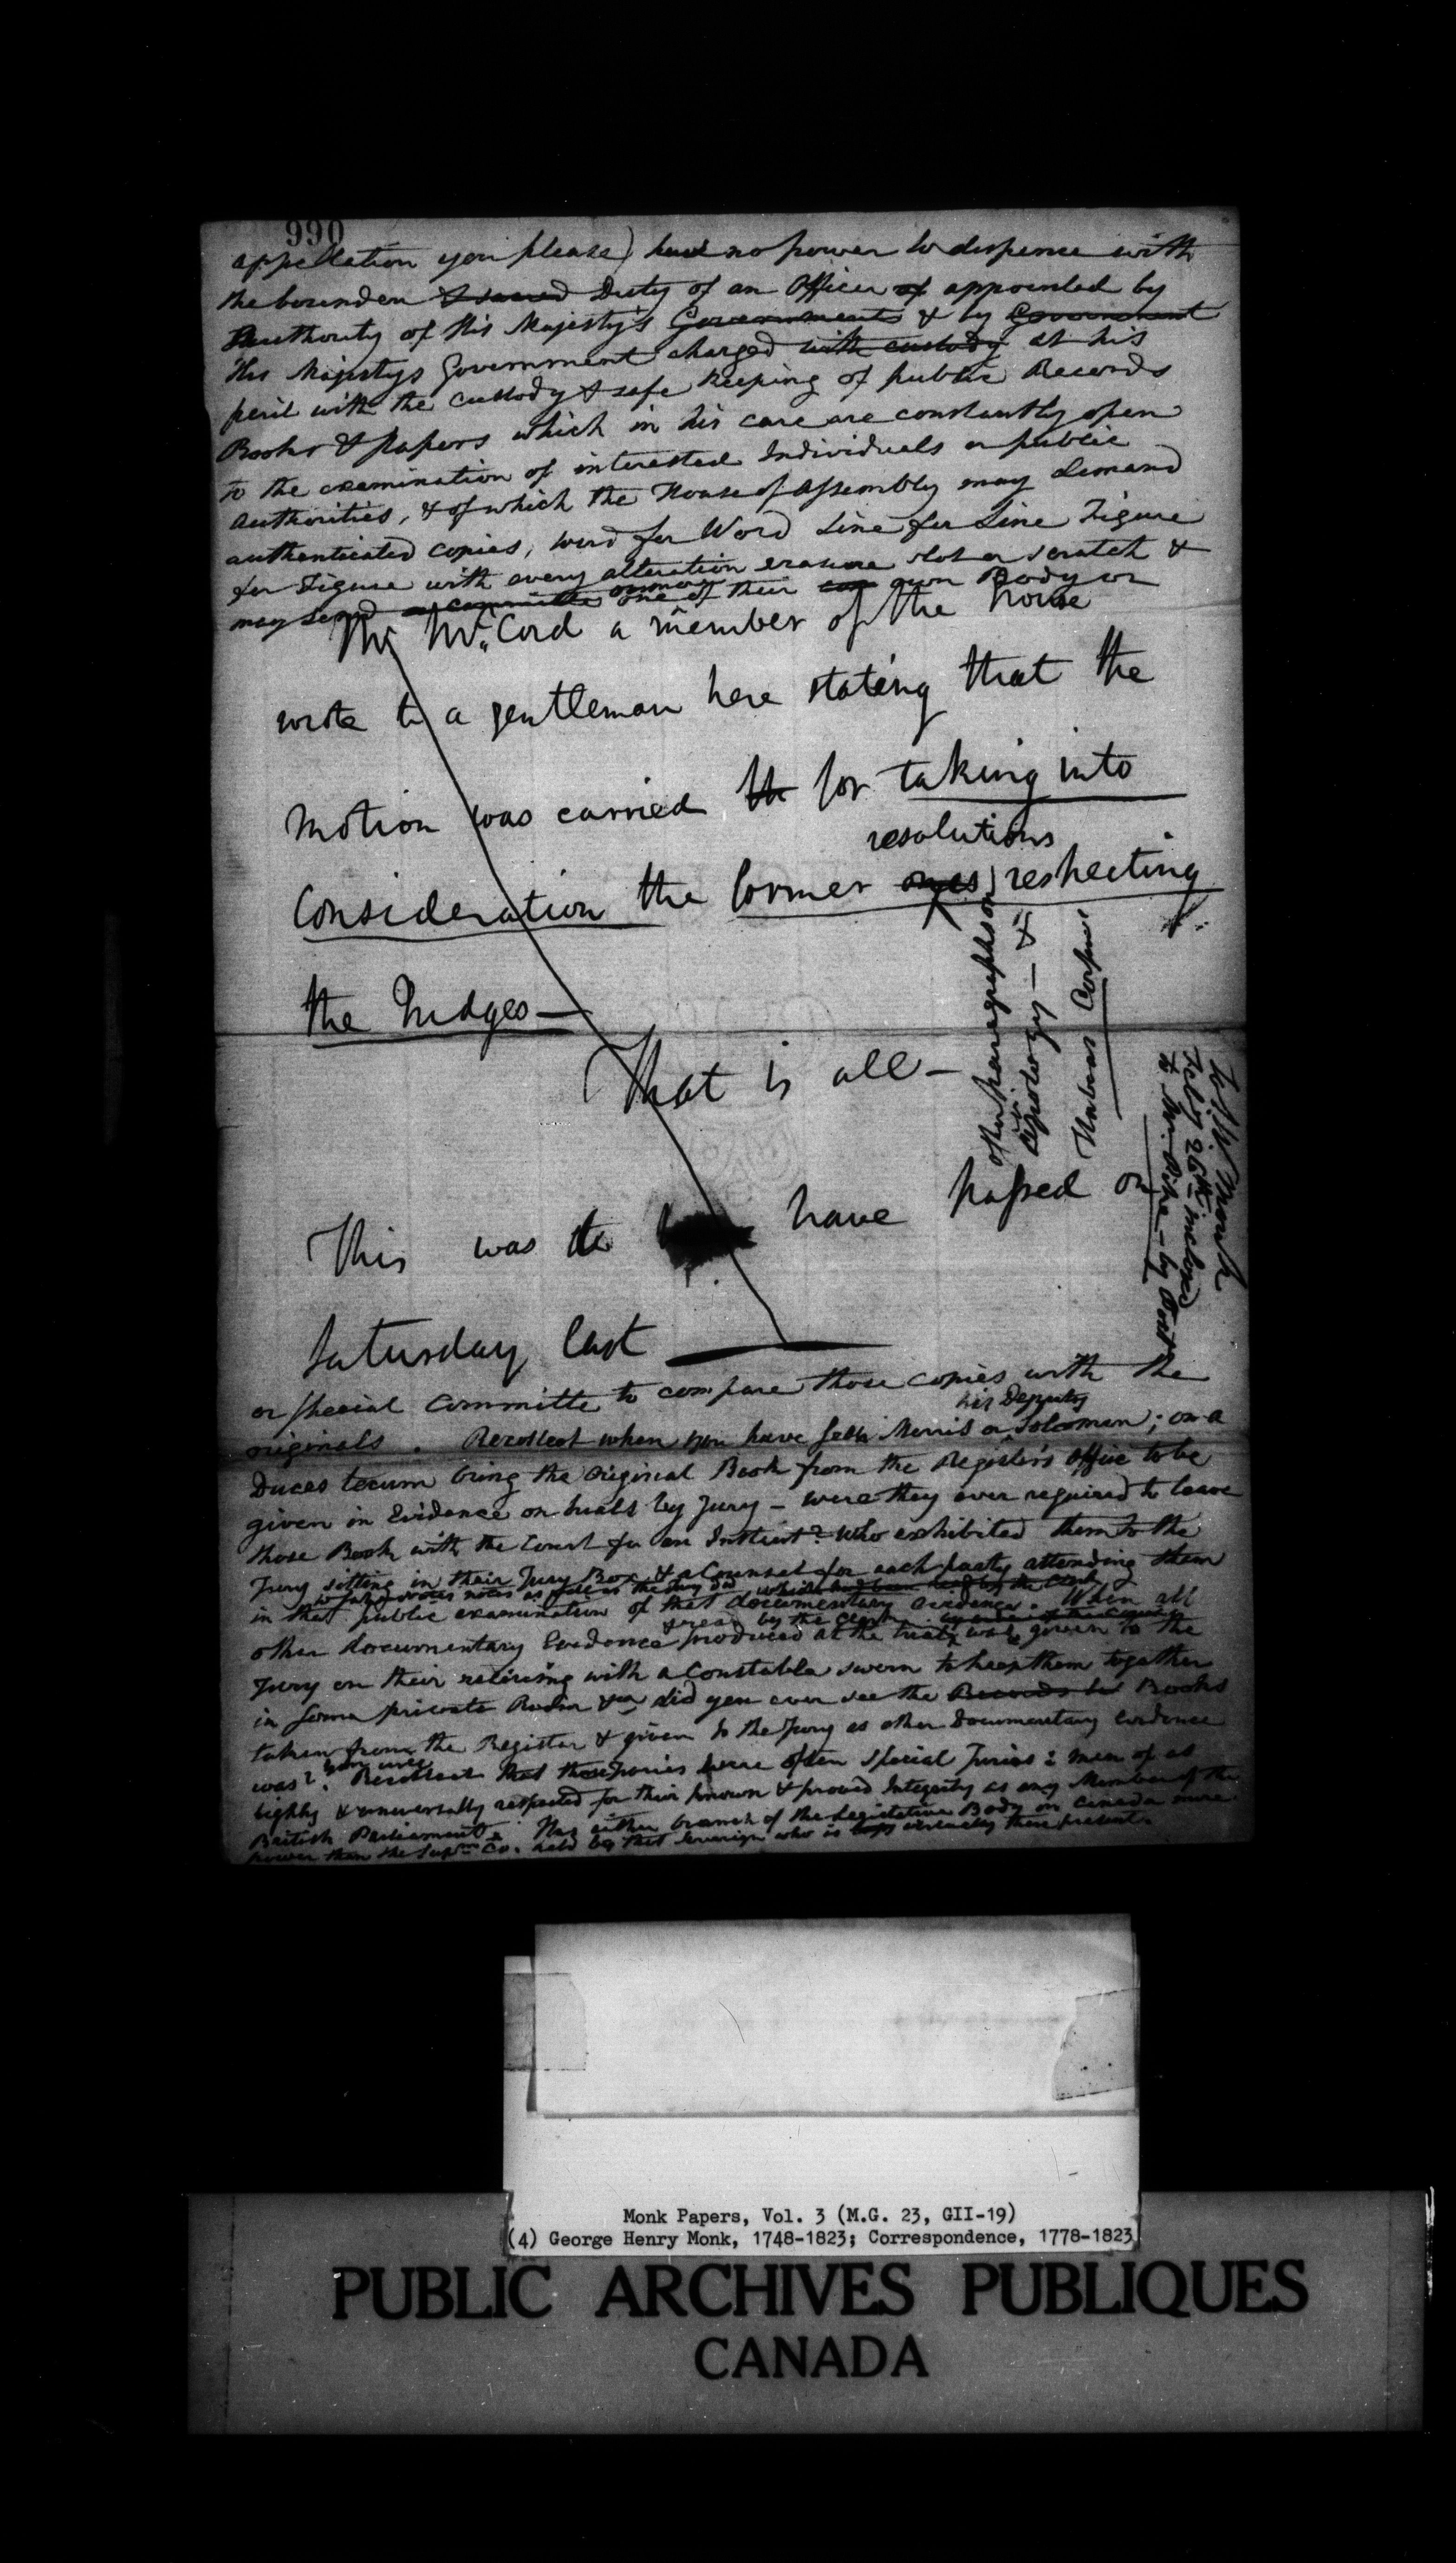 990
appellation you please) had no power to dispense with
the bounden & sacred Duty of an Officer of appointed by
Authority of His Majesty's Governments & by Government
His Majestys Government charged with custody at his
peril with the custody & safe keeping of public Records
Books & papers which in his care are constantly open
to the examination of interested Individuals or public
authorities, & of which the House of Assembly may demand
authenticated copies, word for Word Line for Line Figure
for Figure with every alteration erasure blot or scratch &
or more
may send a committee one of their own Body or
Mr McCord a member of the house
wrote to a gentleman here stating that the
motion was carried th for taking into
resolutions
Consideration the former ones respecting
the Judges —
That is all —
This was to have passed on
Saturday last
other paragraphs on
apology — &
Habeas Corpus
To W Monk
Feby 26th inclosed
to Mr. Pike — by Post
or special Committe to compare those copies with the
his Deputy
originals. Recollect when you have seen Morris or Solomon; on a
Duces tecum bring the original Book from the Register's Office to be
given in Evidence on trials by Jury — were they ever required to leave
those Book with the Court for an Instant? Who exhibited them to the
Jury sitting in their Jury Box, & a Counsel for each party attending them
notes as well as the Jury did which had been read by the Clerk
in that public examination of that documentary evidence. When all
& read by the Clerk
other documentary Evidence produced at the trial, was given to the
Jury on their retiring with a Constable sworn to keep them together
in some private Room did you ever see the Records Books
taken from the Register & given to the Jury as other Documentary evidence
you will
was? Recollect that those Juries were often Special Juries: men of as
highly & universally respected for their known & proved Integrity as any Member of the
British Parliament. Has either branch of the Legislative Body in Canada more
power than the Supm Ct. held by that Sovereign who is virtually there present.
Monk Papers, Vol. 3 (M.G. 23, GII-19)
(4) George Henry Monk, 1748-1823; Correspondence, 1778-1823
PUBLIC ARCHIVES PUBLIQUES
CANADA